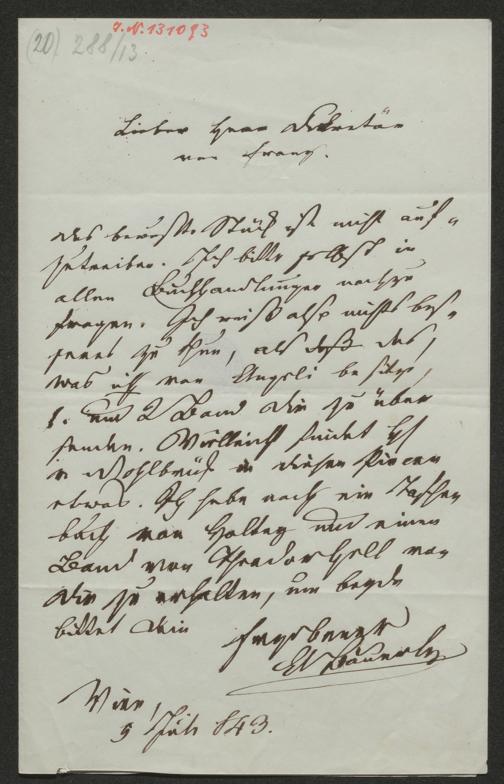 (20) 288/13
J.N. 131093
Lieber Herr Sekretär
von Franz.
Das bewußte Stück ist nicht auf=
zutreiben. Ich bitte selbst in
allen Buchhandlungen nachzu
fragen. Ich weiß also nichts bes=
seres zu thun, als daß das,
was ich von Angeli besitze,
1. und 2 Band Dir zu über
senden. Vielleicht findet H
v Wohlbrück in diesen Piecen
etwas. Ich habe noch ein Taschen
buch von Holtey und einen
Band von Theodor Hell von
Dir zu erhalten, um beyde
bittet Dein
ergebenster
Bäuerle
Wien,
5 Juli 843.